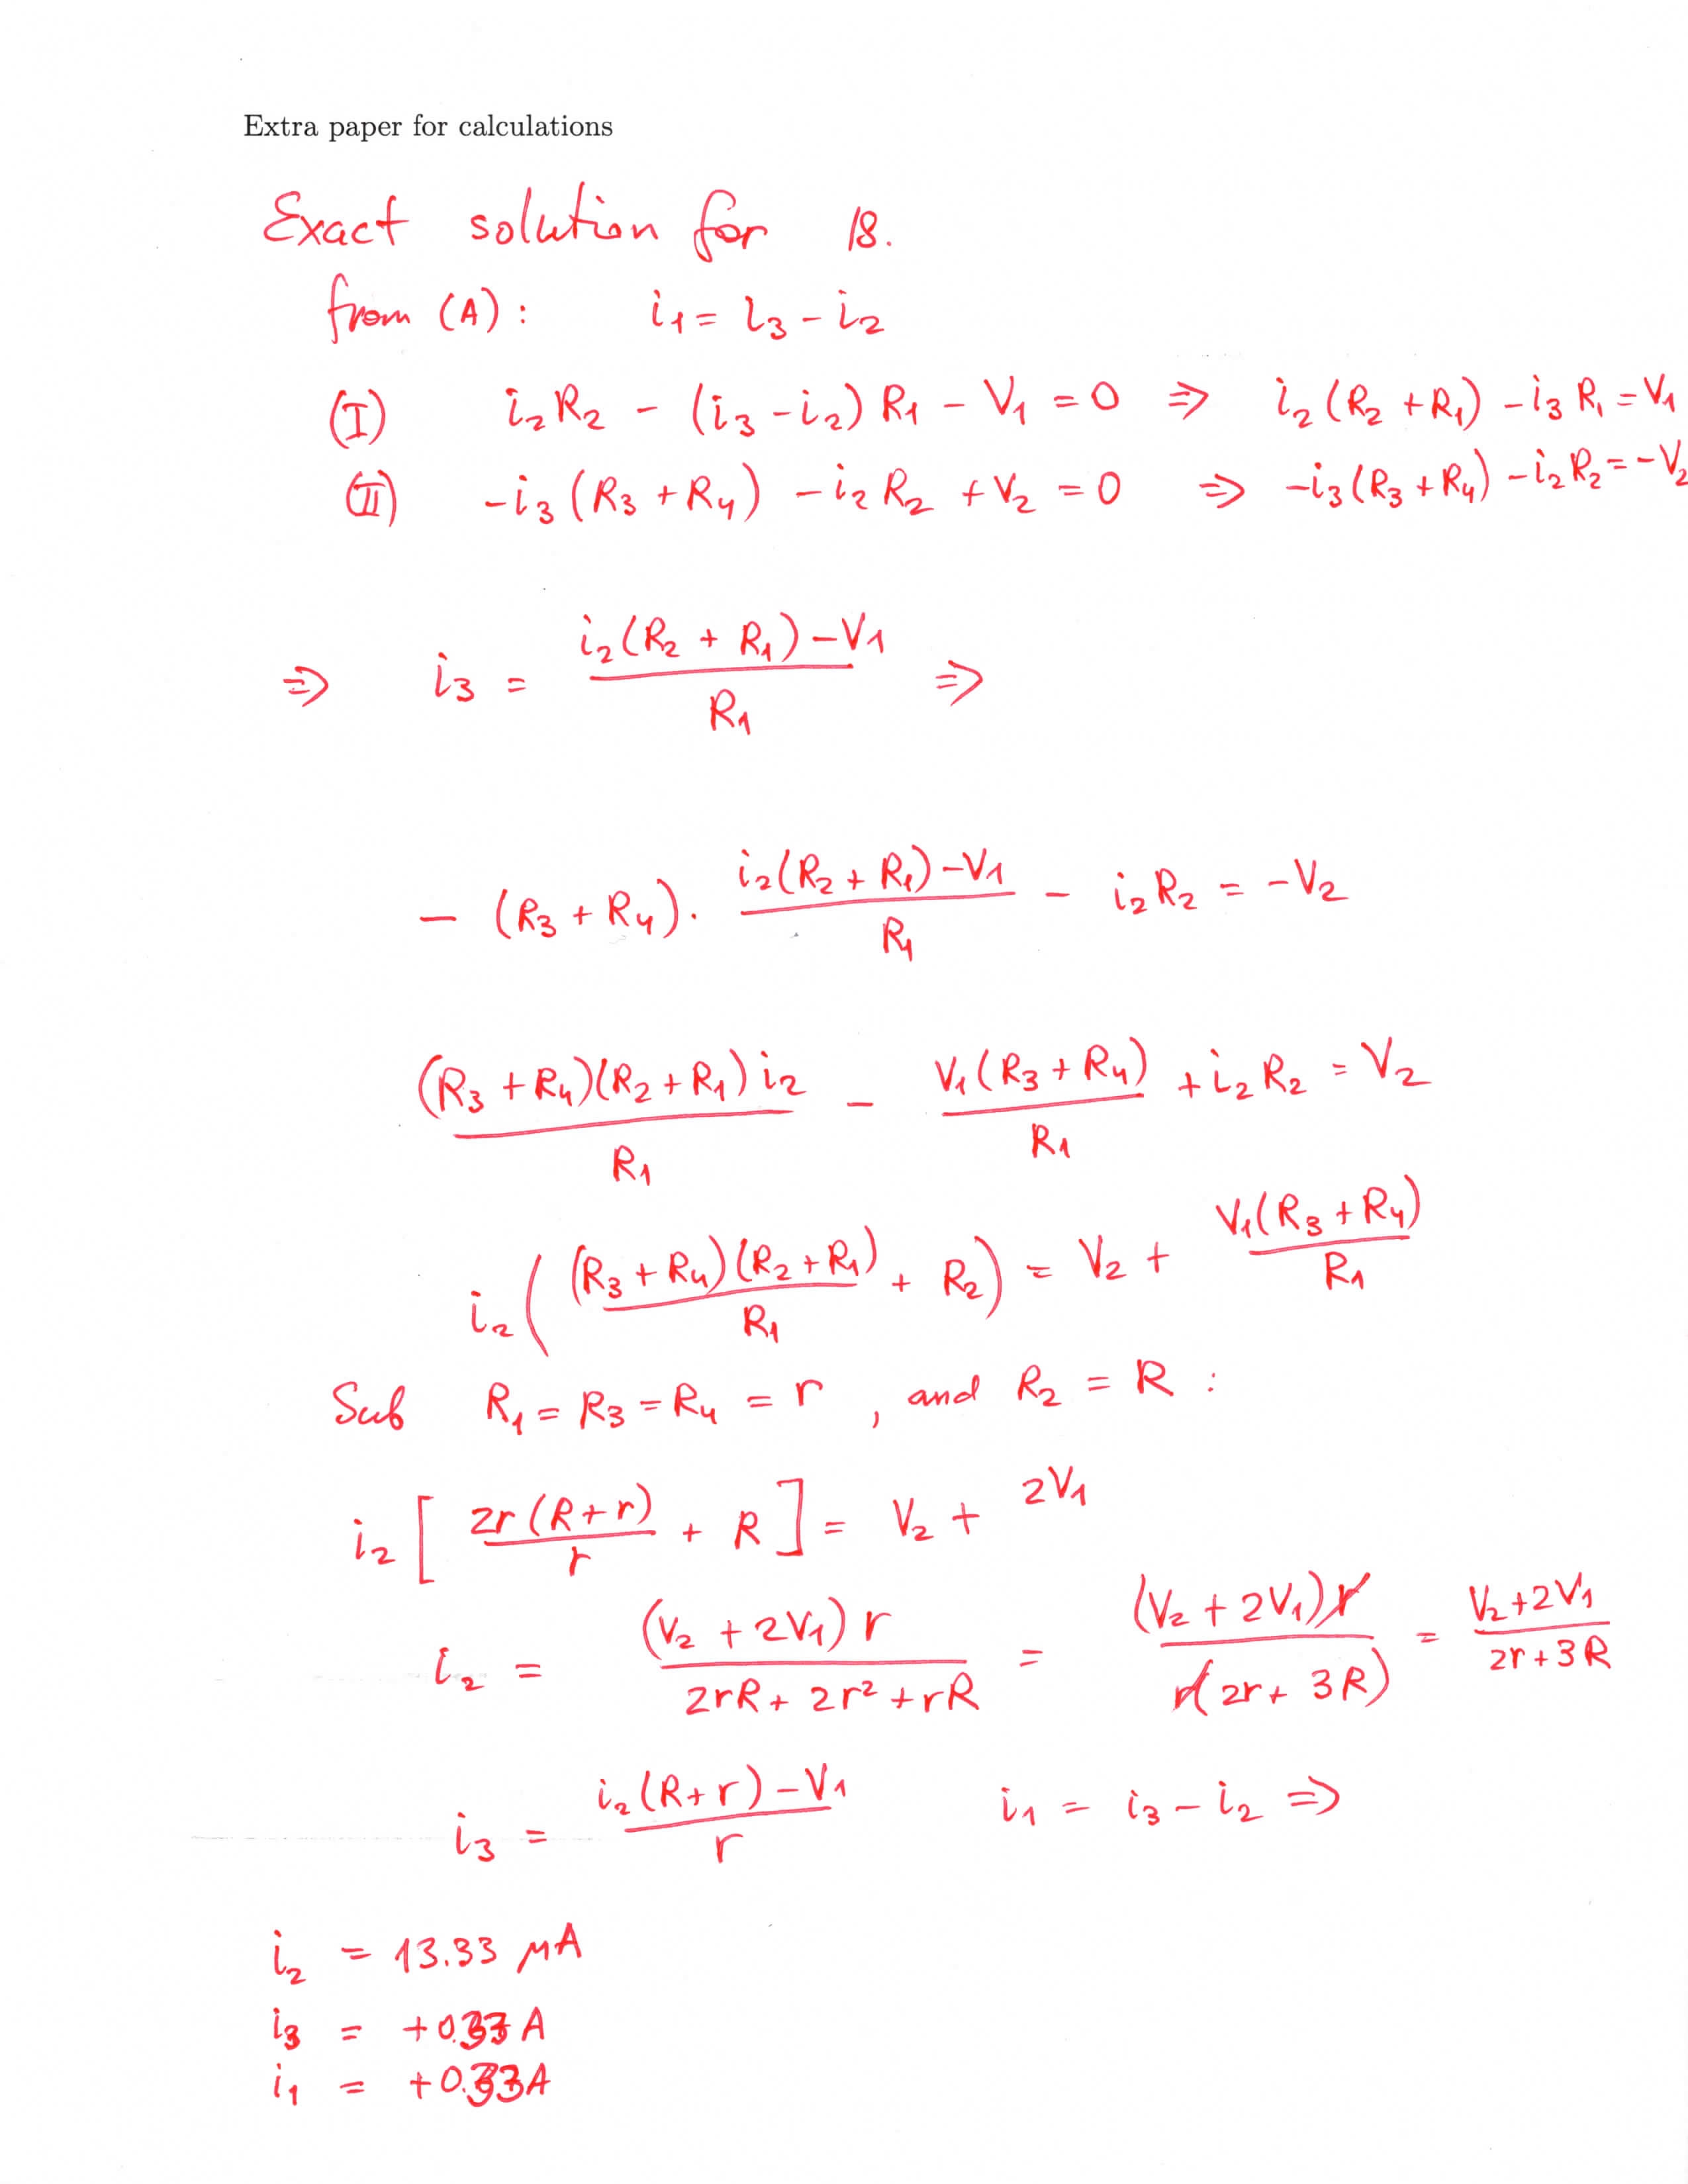 Extra paper for calculations
Exact solution for 18.
from (A): i₁ = i₃ - i₂
(I) i₂R₂ - (i₃ - i₂) R₁ - V₁ = 0 ⇒ i₂ (R₂ + R₁) - i₃ R₁ = V₁
(II) -i₃ (R₃ + R₄) - i₂ R₂ + V₂ = 0 ⇒ -i₃ (R₃ + R₄) - i₂ R₂ = -V₂
⇒ i₃ = (i₂ (R₂ + R₁) - V₁) / R₁ ⇒
- (R₃ + R₄) · (i₂ (R₂ + R₁) - V₁) / R₁ - i₂ R₂ = -V₂
(R₃ + R₄)(R₂ + R₁) i₂ / R₁ - V₁ (R₃ + R₄) / R₁ + i₂ R₂ = V₂
i₂ ( (R₃ + R₄)(R₂ + R₁) / R₁ + R₂ ) = V₂ + V₁ (R₃ + R₄) / R₁
Sub R₁ = R₃ = R₄ = r , and R₂ = R :
i₂ [ 2r (R + r) / r + R ] = V₂ + 2V₁
i₂ = (V₂ + 2V₁) r / (2rR + 2r² + rR) = (V₂ + 2V₁) r / (r(2r + 3R)) = (V₂ + 2V₁) / (2r + 3R)
i₃ = (i₂ (R + r) - V₁) / r i₁ = i₃ - i₂ ⇒
i₂ = 13.33 μA
i₃ = +0.33 A
i₁ = +0.33 A